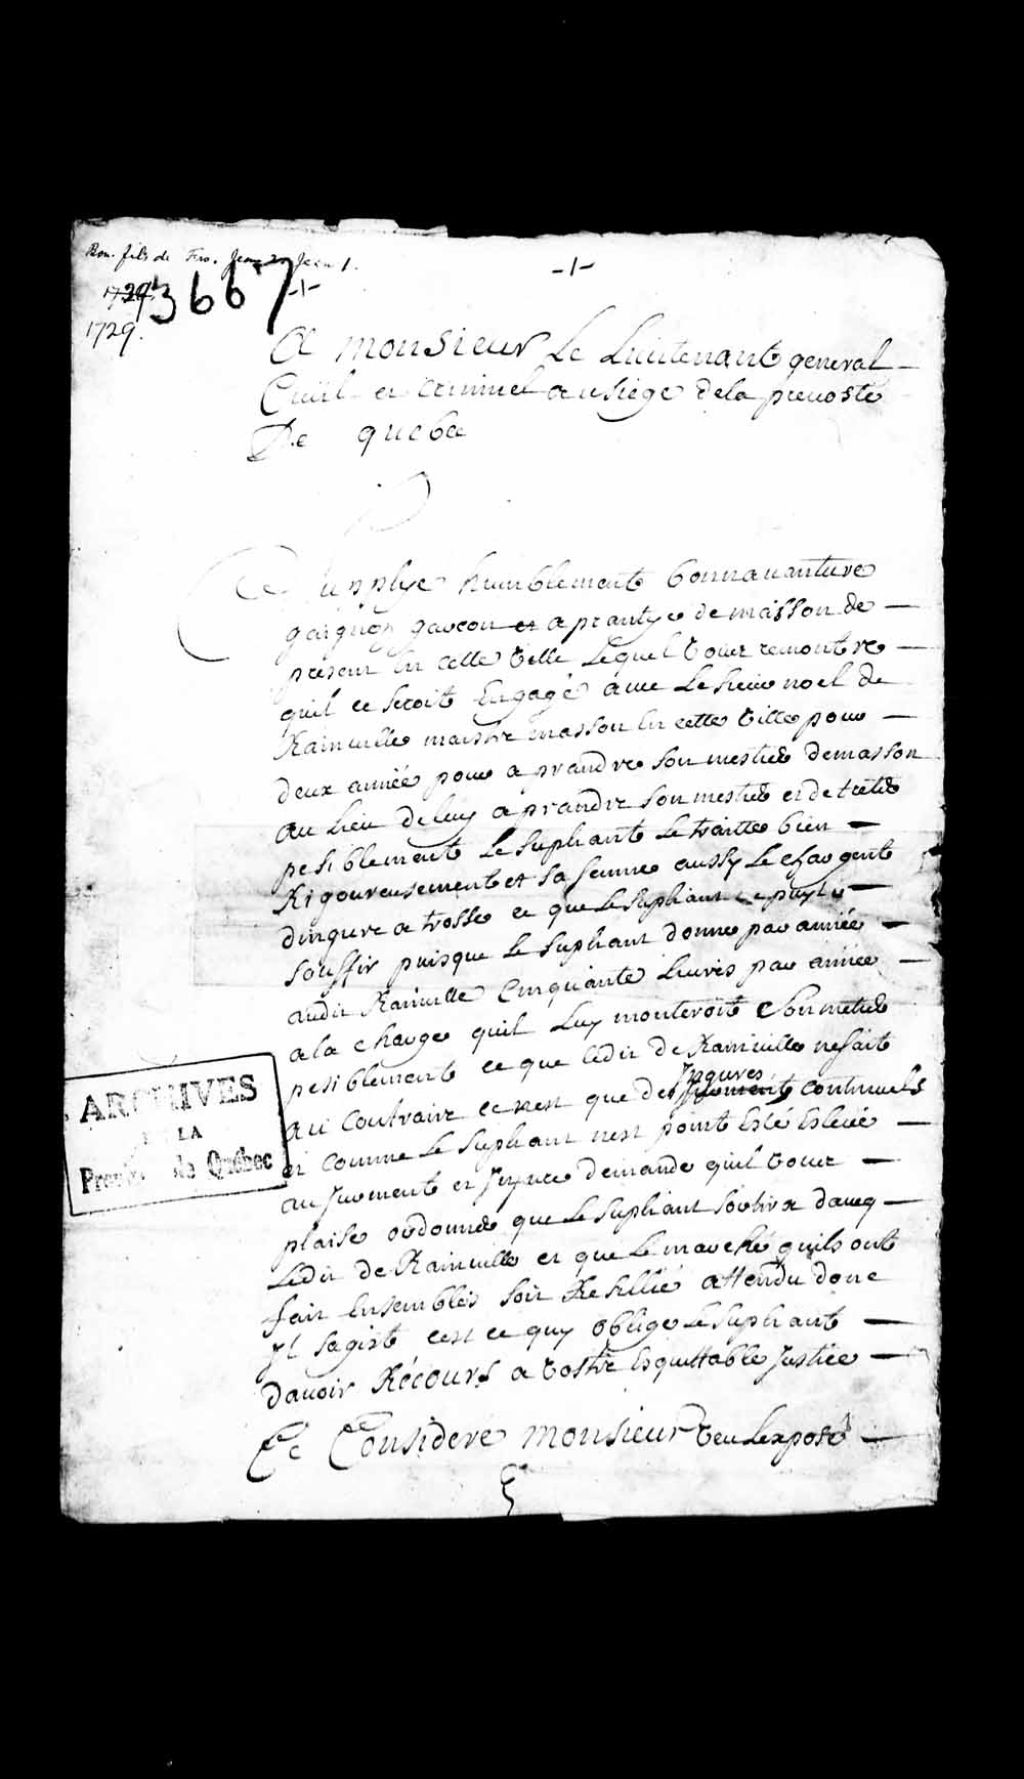 Bon. fils de Fro. Jean 2 Jean 1.
-1-
1729
3667
-1-
1729.
A monsieur Le Lieutenant general
Civil et Criminel au siege dela prevosté
De quebec
Supplye humblement bonnavanture
gaignon garcon et aprantye de masson de
present En cette ville Lequel vous remontre
quil ce seroit Engagé avec Le sieur noel de
Rainville maistre masson En cette ville pour
deux année pour aprandre son mestier demasson
au Lieu deluy aprandre son mestier et de
pesiblement Le supliant Le traitte bien
Rigoureusement et sa femme aussy Le chargent
dingure atrosse ce que Le supliant ne puy
souffir puisque Le supliant donne par année
audit Rainville Cinquante Livres par année
ala charge quil Luy monteroit Son metier
pesiblement ce que ledit de Rainville nefait
au Contraire ce nest que des Jngures continuels
et Comme Le supliant nest point Esté Eslevé
au Jurement et Jnjure demande quil vous
plaise ordonner que Le supliant sortira daveq
Ledit de Rainville et que Le marché quils ont
fait Ensembles soit Resillié attendu donc
yl sagist cest ce quy oblige Le supliant
davoir Récours a vostre Esquittable Justice
Ce Consideré monsieur veu Lexposé
ARCHIVES
LA
Province de Québec